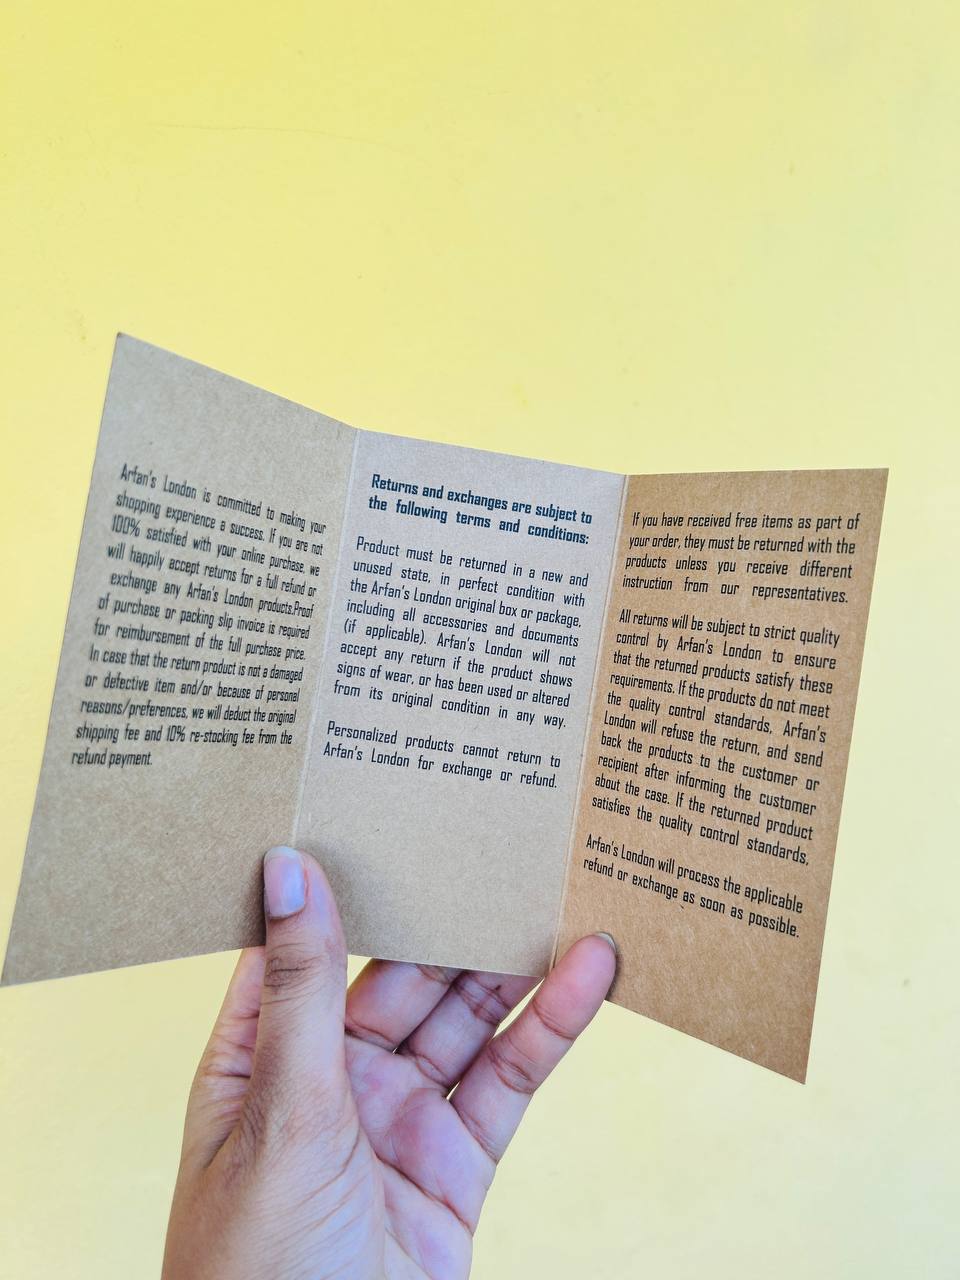 Arfan's London is committed to making your
shopping experience a success. If you are not
100% satisfied with your online purchase, we
will happily accept returns for a full refund or
exchange any Arfan's London products.Proof
of purchase or packing slip invoice is required
for reimbursement of the full purchase price.
In case that the return product is not a damaged
or defective item and/or because of personal
reasons/preferences, we will deduct the original
shipping fee and 10% re-stocking fee from the
refund payment.
Returns and exchanges are subject to
the following terms and conditions:
Product must be returned in a new and
unused state, in perfect condition with
the Arfan's London original box or package,
including all accessories and documents
(if applicable). Arfan's London will not
accept any return if the product shows
signs of wear, or has been used or altered
from its original condition in any way.
Personalized products cannot return to
Arfan's London for exchange or refund.
If you have received free items as part of
your order, they must be returned with the
products unless you receive different
instruction from our representatives.
All returns will be subject to strict quality
control by Arfan's London to ensure
that the returned products satisfy these
requirements. If the products do not meet
the quality control standards, Arfan's
London will refuse the return, and send
back the products to the customer or
recipient after informing the customer
about the case. If the returned product
satisfies the quality control standards,
Arfan's London will process the applicable
refund or exchange as soon as possible.